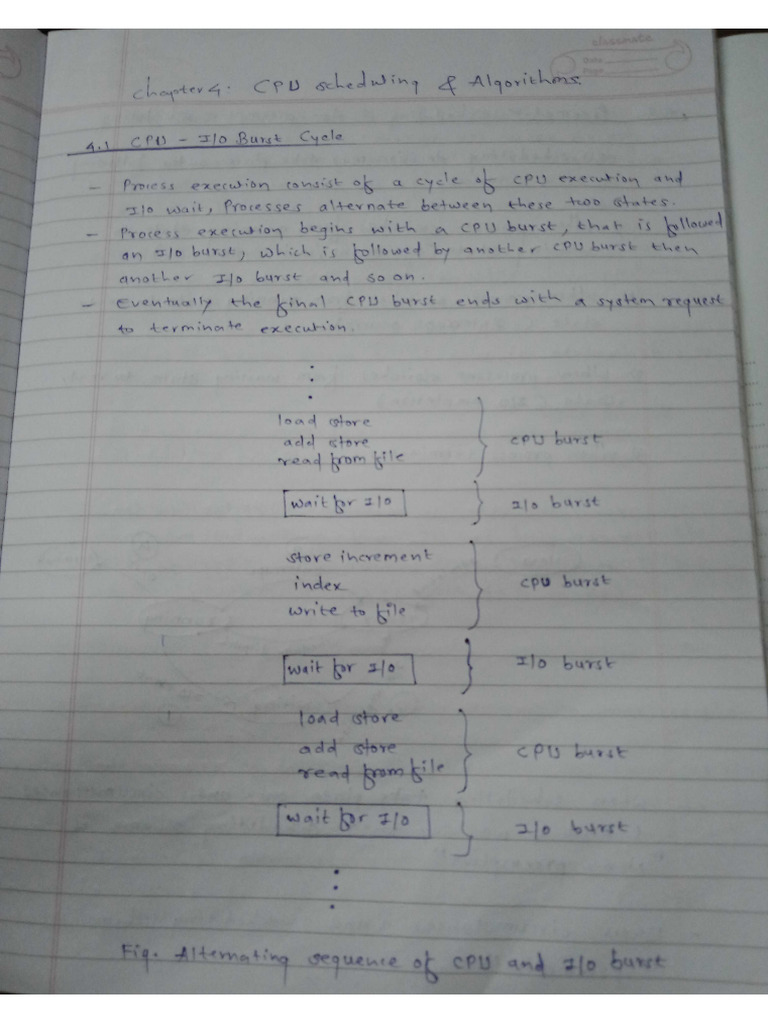 classmate
Date
Page
Chapter 4: CPU Scheduling & Algorithms.
4.1 CPU - I/O Burst Cycle
- Process execution consist of a cycle of CPU execution and
I/O wait, Processes alternate between these two states.
- Process execution begins with a CPU burst, that is followed
an I/O burst, which is followed by another CPU burst then
another I/O burst and so on.
- Eventually the final CPU burst ends with a system request
to terminate execution.
load store
add store
read from file
CPU burst
wait for I/O
I/O burst
store increment
index
write to file
CPU burst
wait for I/O
I/O burst
load store
add store
read from file
CPU burst
wait for I/O
I/O burst
Fig. Alternating sequence of CPU and I/O burst